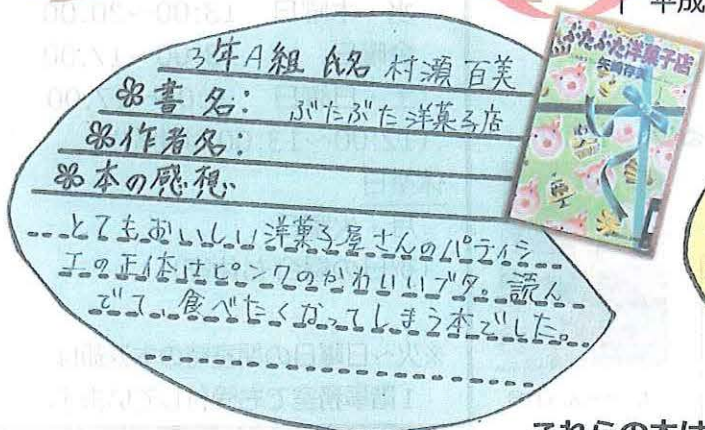 平成
3年A組 氏名 村瀬 百美
書名: ぶたぶた洋菓子店
作者名:
本の感想
とてもおいしい洋菓子屋さんのパティシ
エの正体はピンクのかわいいブタ。読ん
でて、食べたくなってしまう本でした。
ぶたぶた洋菓子店
矢崎存美
これらの本は